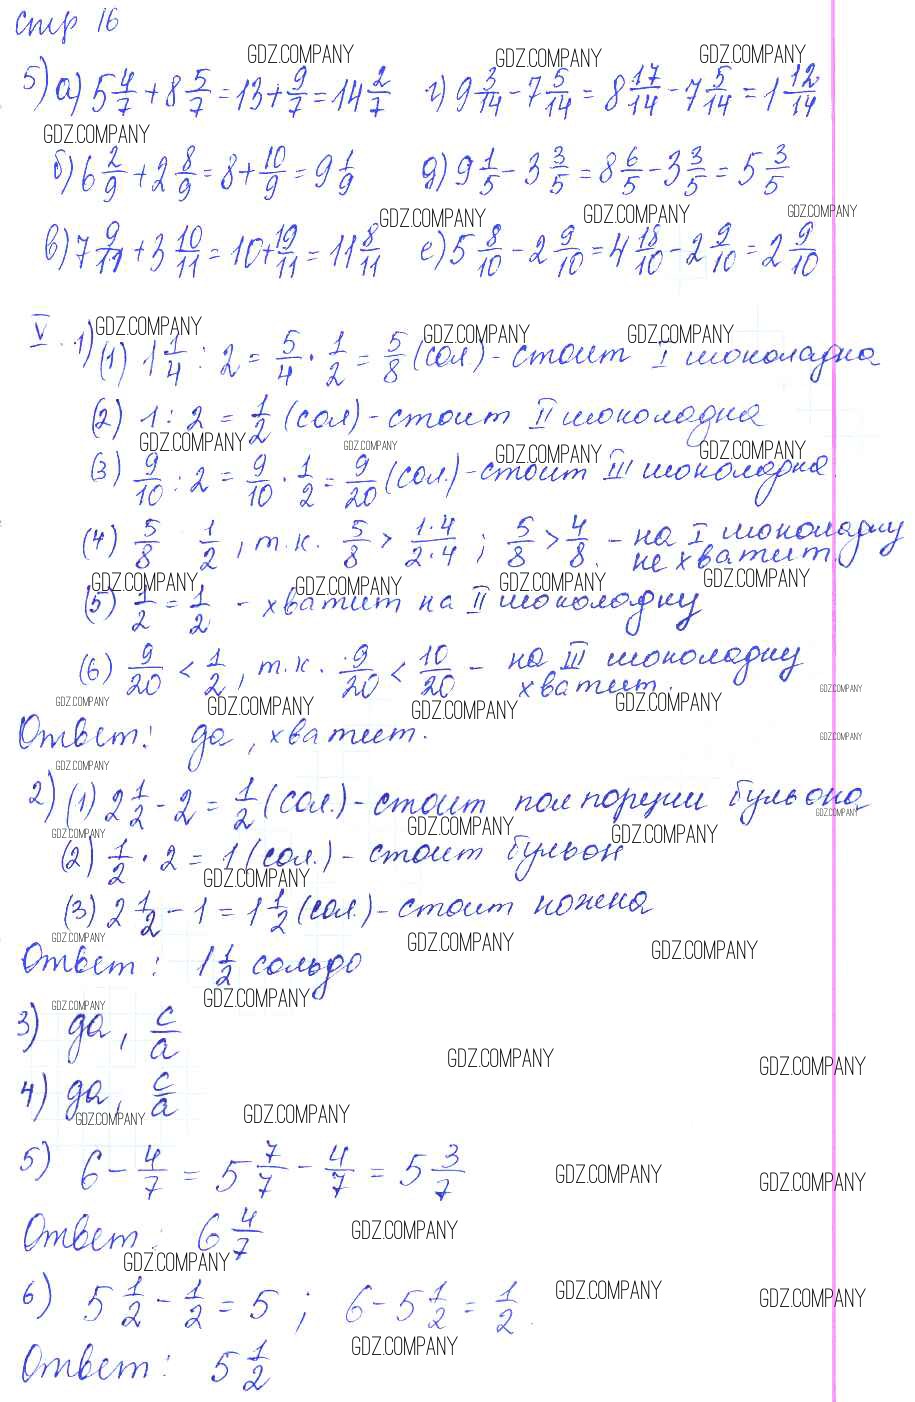 стр 16
GDZ.COMPANY GDZ.COMPANY GDZ.COMPANY
5) а) 5 4/7 + 8 5/7 = 13 + 9/7 = 14 2/7 г) 9 3/14 - 7 5/14 = 8 17/14 - 7 5/14 = 1 12/14
GDZ.COMPANY
б) 6 2/9 + 2 8/9 = 8 + 10/9 = 9 1/9 д) 9 1/5 - 3 3/5 = 8 6/5 - 3 3/5 = 5 3/5
GDZ.COMPANY GDZ.COMPANY GDZ.COMPANY
в) 7 9/11 + 3 10/11 = 10 + 19/11 = 11 8/11 е) 5 8/10 - 2 9/10 = 4 18/10 - 2 9/10 = 2 9/10
GDZ.COMPANY GDZ.COMPANY GDZ.COMPANY
V. 1) (1) 1 1/4 : 2 = 5/4 · 1/2 = 5/8 (сол) - стоит I шоколадка
(2) 1 : 2 = 1/2 (сол) - стоит II шоколадка
GDZ.COMPANY GDZ.COMPANY GDZ.COMPANY GDZ.COMPANY
(3) 9/10 : 2 = 9/10 · 1/2 = 9/20 (сол.) - стоит III шоколадка.
(4) 5/8 1/2, т.к. 5/8 > 1·4/2·4; 5/8 > 4/8. - на I шоколадку
не хватит.
GDZ.COMPANY GDZ.COMPANY GDZ.COMPANY GDZ.COMPANY
(5) 1/2 = 1/2 - хватит на II шоколадку
(6) 9/20 < 1/2, т.к. 9/20 < 10/20 - на III шоколадку
хватит.
GDZ.COMPANY GDZ.COMPANY GDZ.COMPANY GDZ.COMPANY GDZ.COMPANY
Ответ: да, хватит.
GDZ.COMPANY
GDZ.COMPANY
2) (1) 2 1/2 - 2 = 1/2 (сол.) - стоит пол порции бульона
GDZ.COMPANY GDZ.COMPANY GDZ.COMPANY GDZ.COMPANY
(2) 1/2 · 2 = 1 (сол.) - стоит бульон
GDZ.COMPANY
(3) 2 1/2 - 1 = 1 1/2 (сол.) - стоит ножка
GDZ.COMPANY GDZ.COMPANY GDZ.COMPANY
Ответ: 1 1/2 сольдо
GDZ.COMPANY GDZ.COMPANY
3) да, c/a
GDZ.COMPANY GDZ.COMPANY
4) да, c/a
GDZ.COMPANY GDZ.COMPANY
5) 6 - 4/7 = 5 7/7 - 4/7 = 5 3/7
GDZ.COMPANY GDZ.COMPANY
Ответ: 6 4/7
GDZ.COMPANY
GDZ.COMPANY
6) 5 1/2 - 1/2 = 5; 6 - 5 1/2 = 1/2.
GDZ.COMPANY GDZ.COMPANY
Ответ: 5 1/2
GDZ.COMPANY